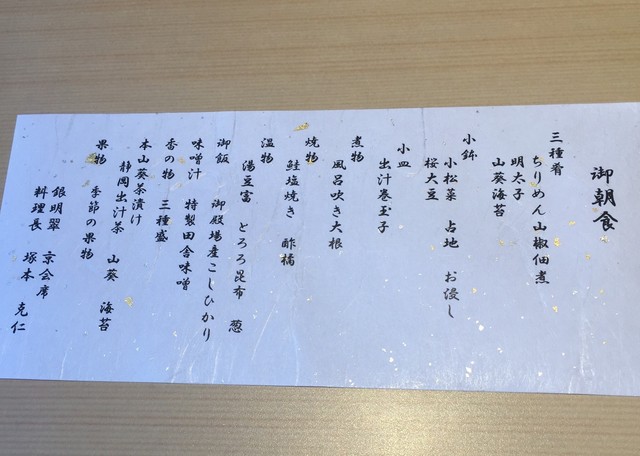 御朝食
三種肴
ちりめん山椒佃煮
明太子
山葵海苔
小鉢
小松菜 占地 お浸し
桜大豆
小皿
出汁巻玉子
煮物
風呂吹き大根
焼物
鮭塩焼き 酢橘
温物
湯豆富 とろろ昆布 葱
御飯 御殿場産こしひかり
味噌汁 特製田舎味噌
香の物 三種盛
本山葵茶漬け
静岡出汁茶 山葵 海苔
果物 季節の果物
銀明翠 京会席
料理長 塚本 克仁